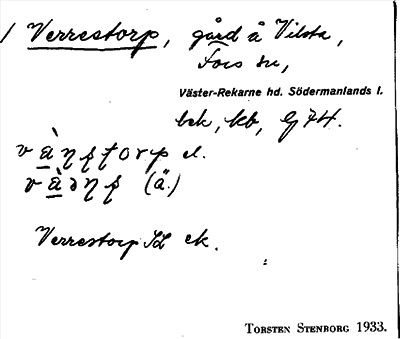 1 Verrestorp, gård å Vilsta,
Fors sn,
Väster-Rekarne hd. Södermanlands l.
bek, kb, G74.
el.
(ä.)
Verrestorp SL ek.
TORSTEN STENBORG 1933.